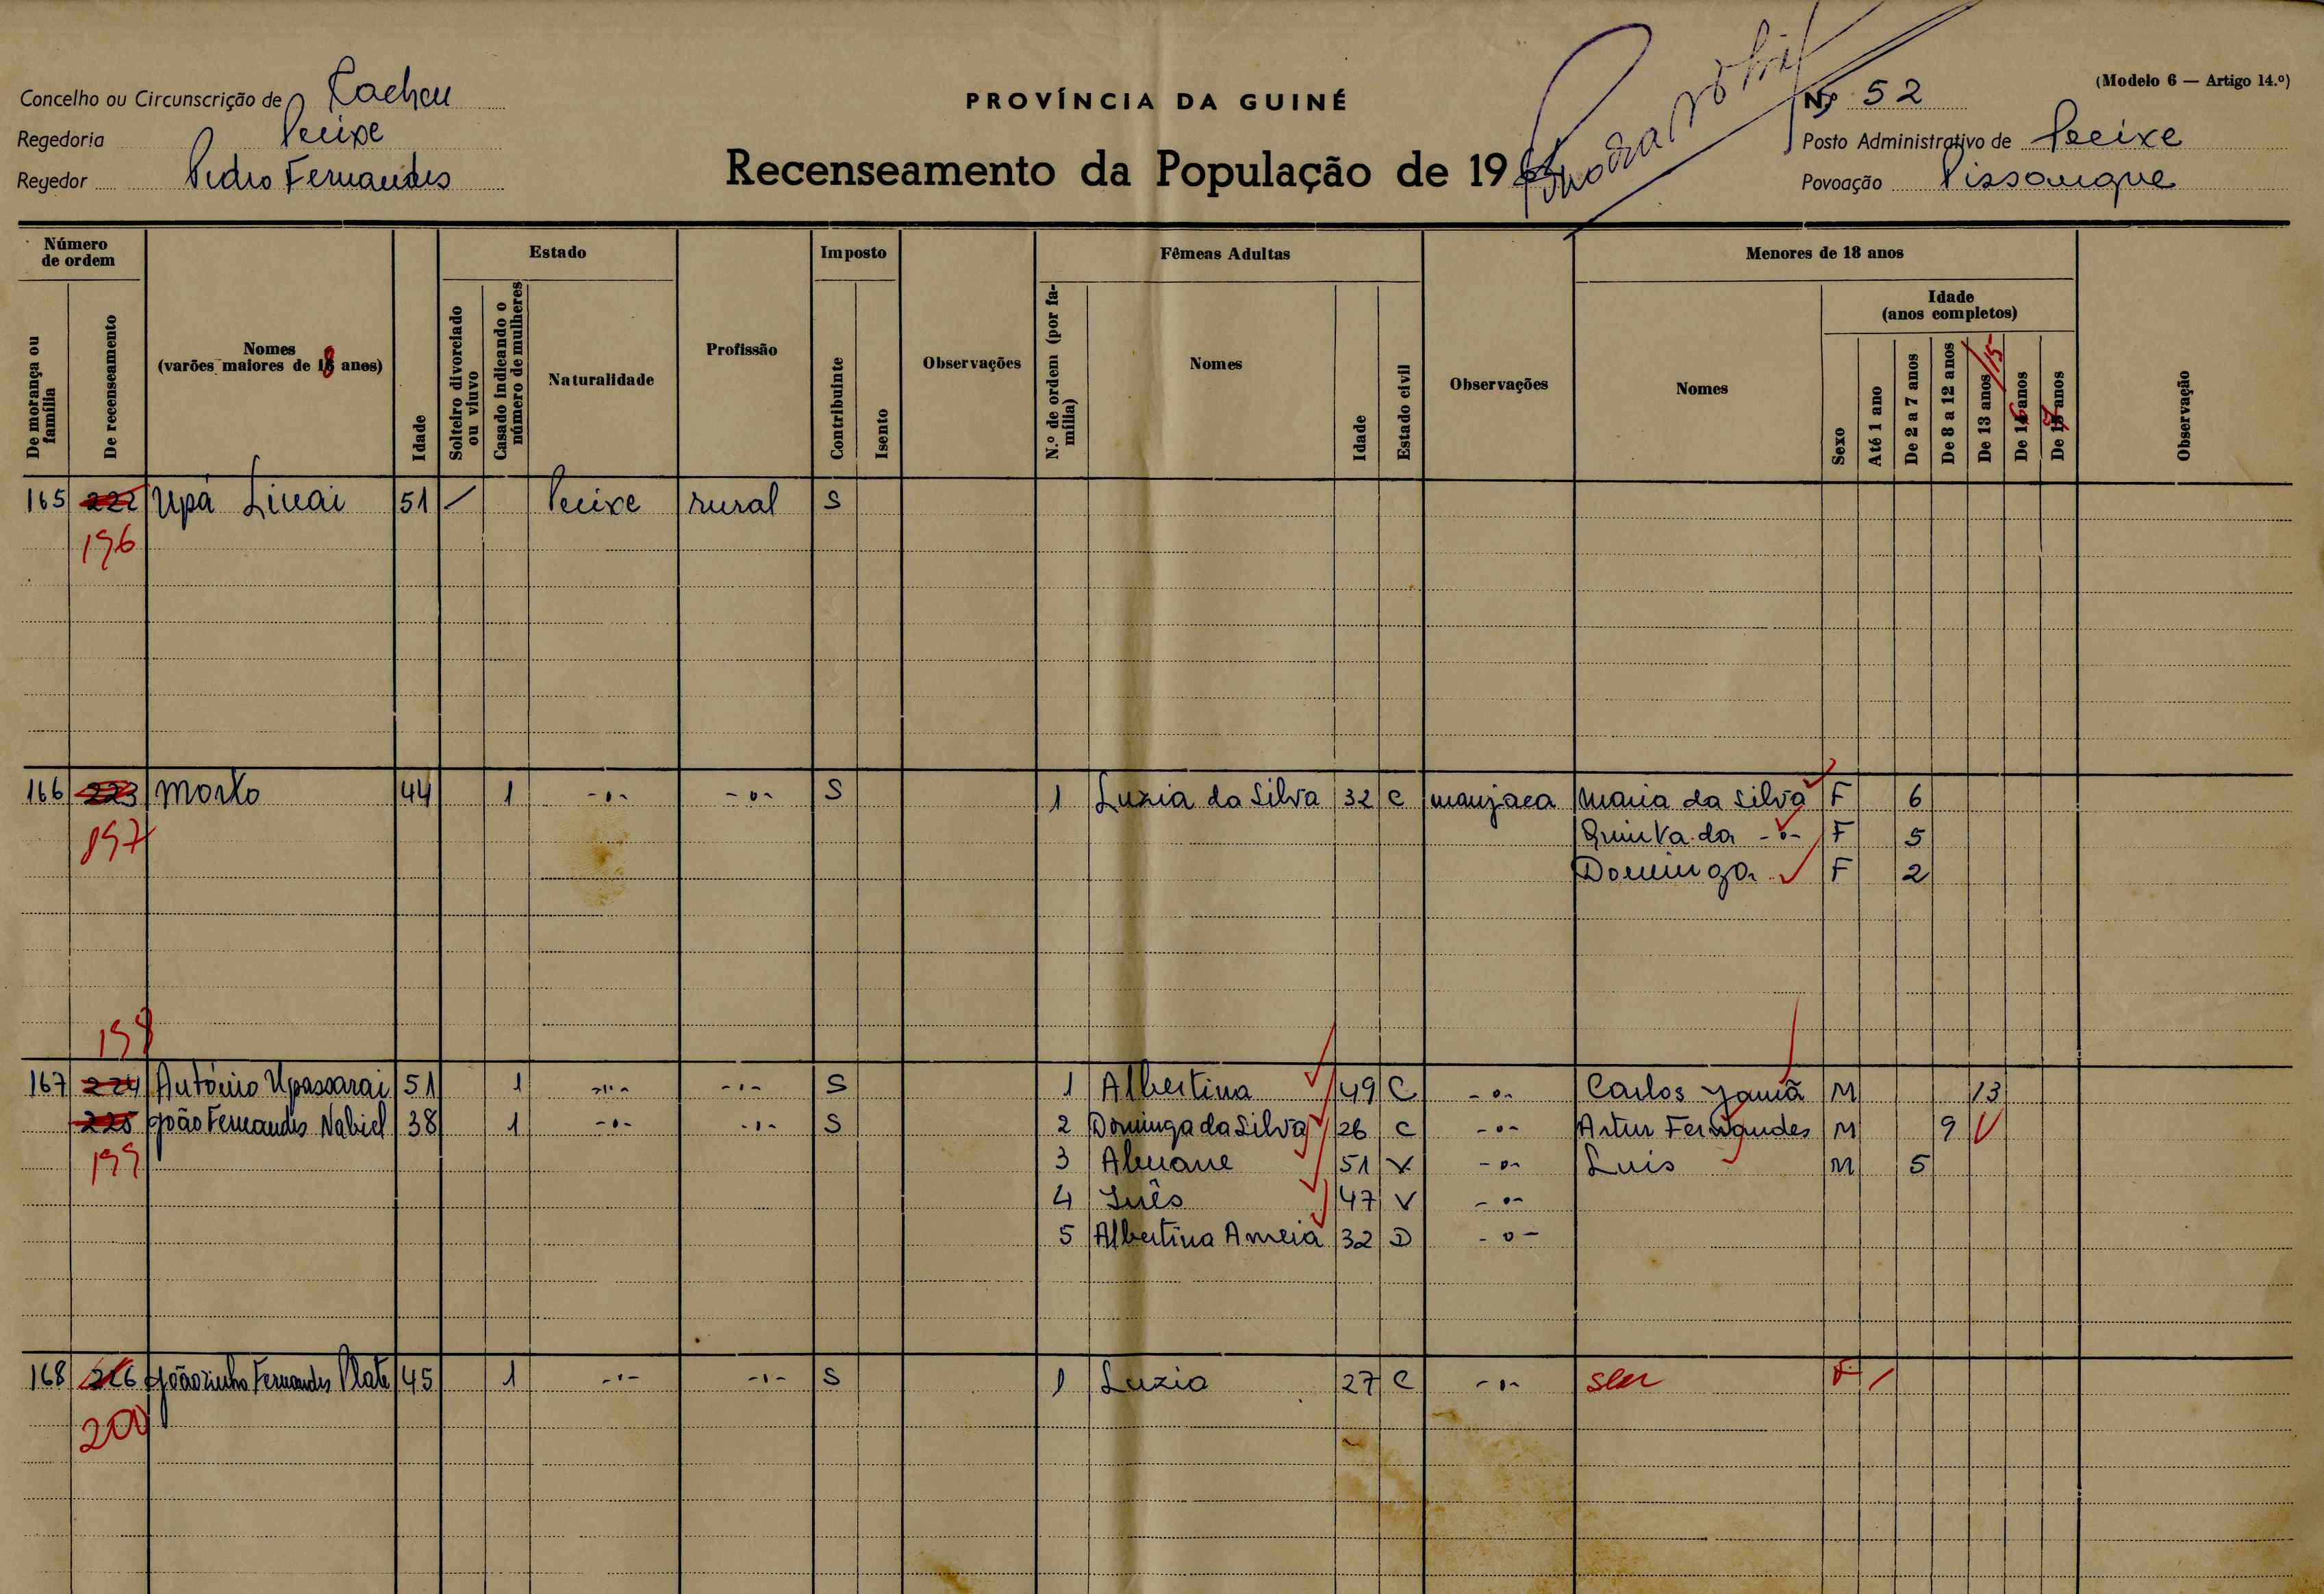 Concelho ou Circunscrição de Cacheu
Regedoria Pecixe
Regedor Pedro Fernandes
PROVÍNCIA DA GUINÉ
Recenseamento da População de 19
(Modelo 6 — Artigo 14.º)
Nº 52
Posto Administrativo de Pecixe
Povoação Pissangue
Número de ordem
De morança ou família
De recenseamento
Nomes
(varões maiores de 18 anos)
Idade
Estado
Solteiro divorciado ou viuvo
Casado indicando o número de mulheres
Naturalidade
Profissão
Imposto
Contribuinte
Isento
Observações
Fêmeas Adultas
N.º de ordem (por família)
Nomes
Idade
Estado civil
Observações
Menores de 18 anos
Nomes
Idade
(anos completos)
Sexo
Até 1 ano
De 2 a 7 anos
De 8 a 12 anos
De 13 anos /15
De 16 anos
De 17 anos
Observação
165 222 Upá Linai 51 / Pecixe rural S
196
166 223 Morto 44 1 -o- -o- S 1 Luzia da Silva 32 C manjaca Maria da Silva F 6
197 Quinta da -o- F 5
Dominga F 2
198
167 224 António Upassarai 51 1 -"- -"- S 1 Albertina 49 C -o- Carlos Yamã M 13
225 João Fernandes Nabiel 38 1 -o- -"- S 2 Dominga da Silva 26 C -o- Artur Fernandes M 9
199 3 51 V -o- Luis M 5
4 Inês 47 V -o-
5 Albertina Ameia 32 D -o-
168 226 Joãozinho Fernandes Plate 45 1 -"- -"- S 1 Luzia 27 C -"- F /
200